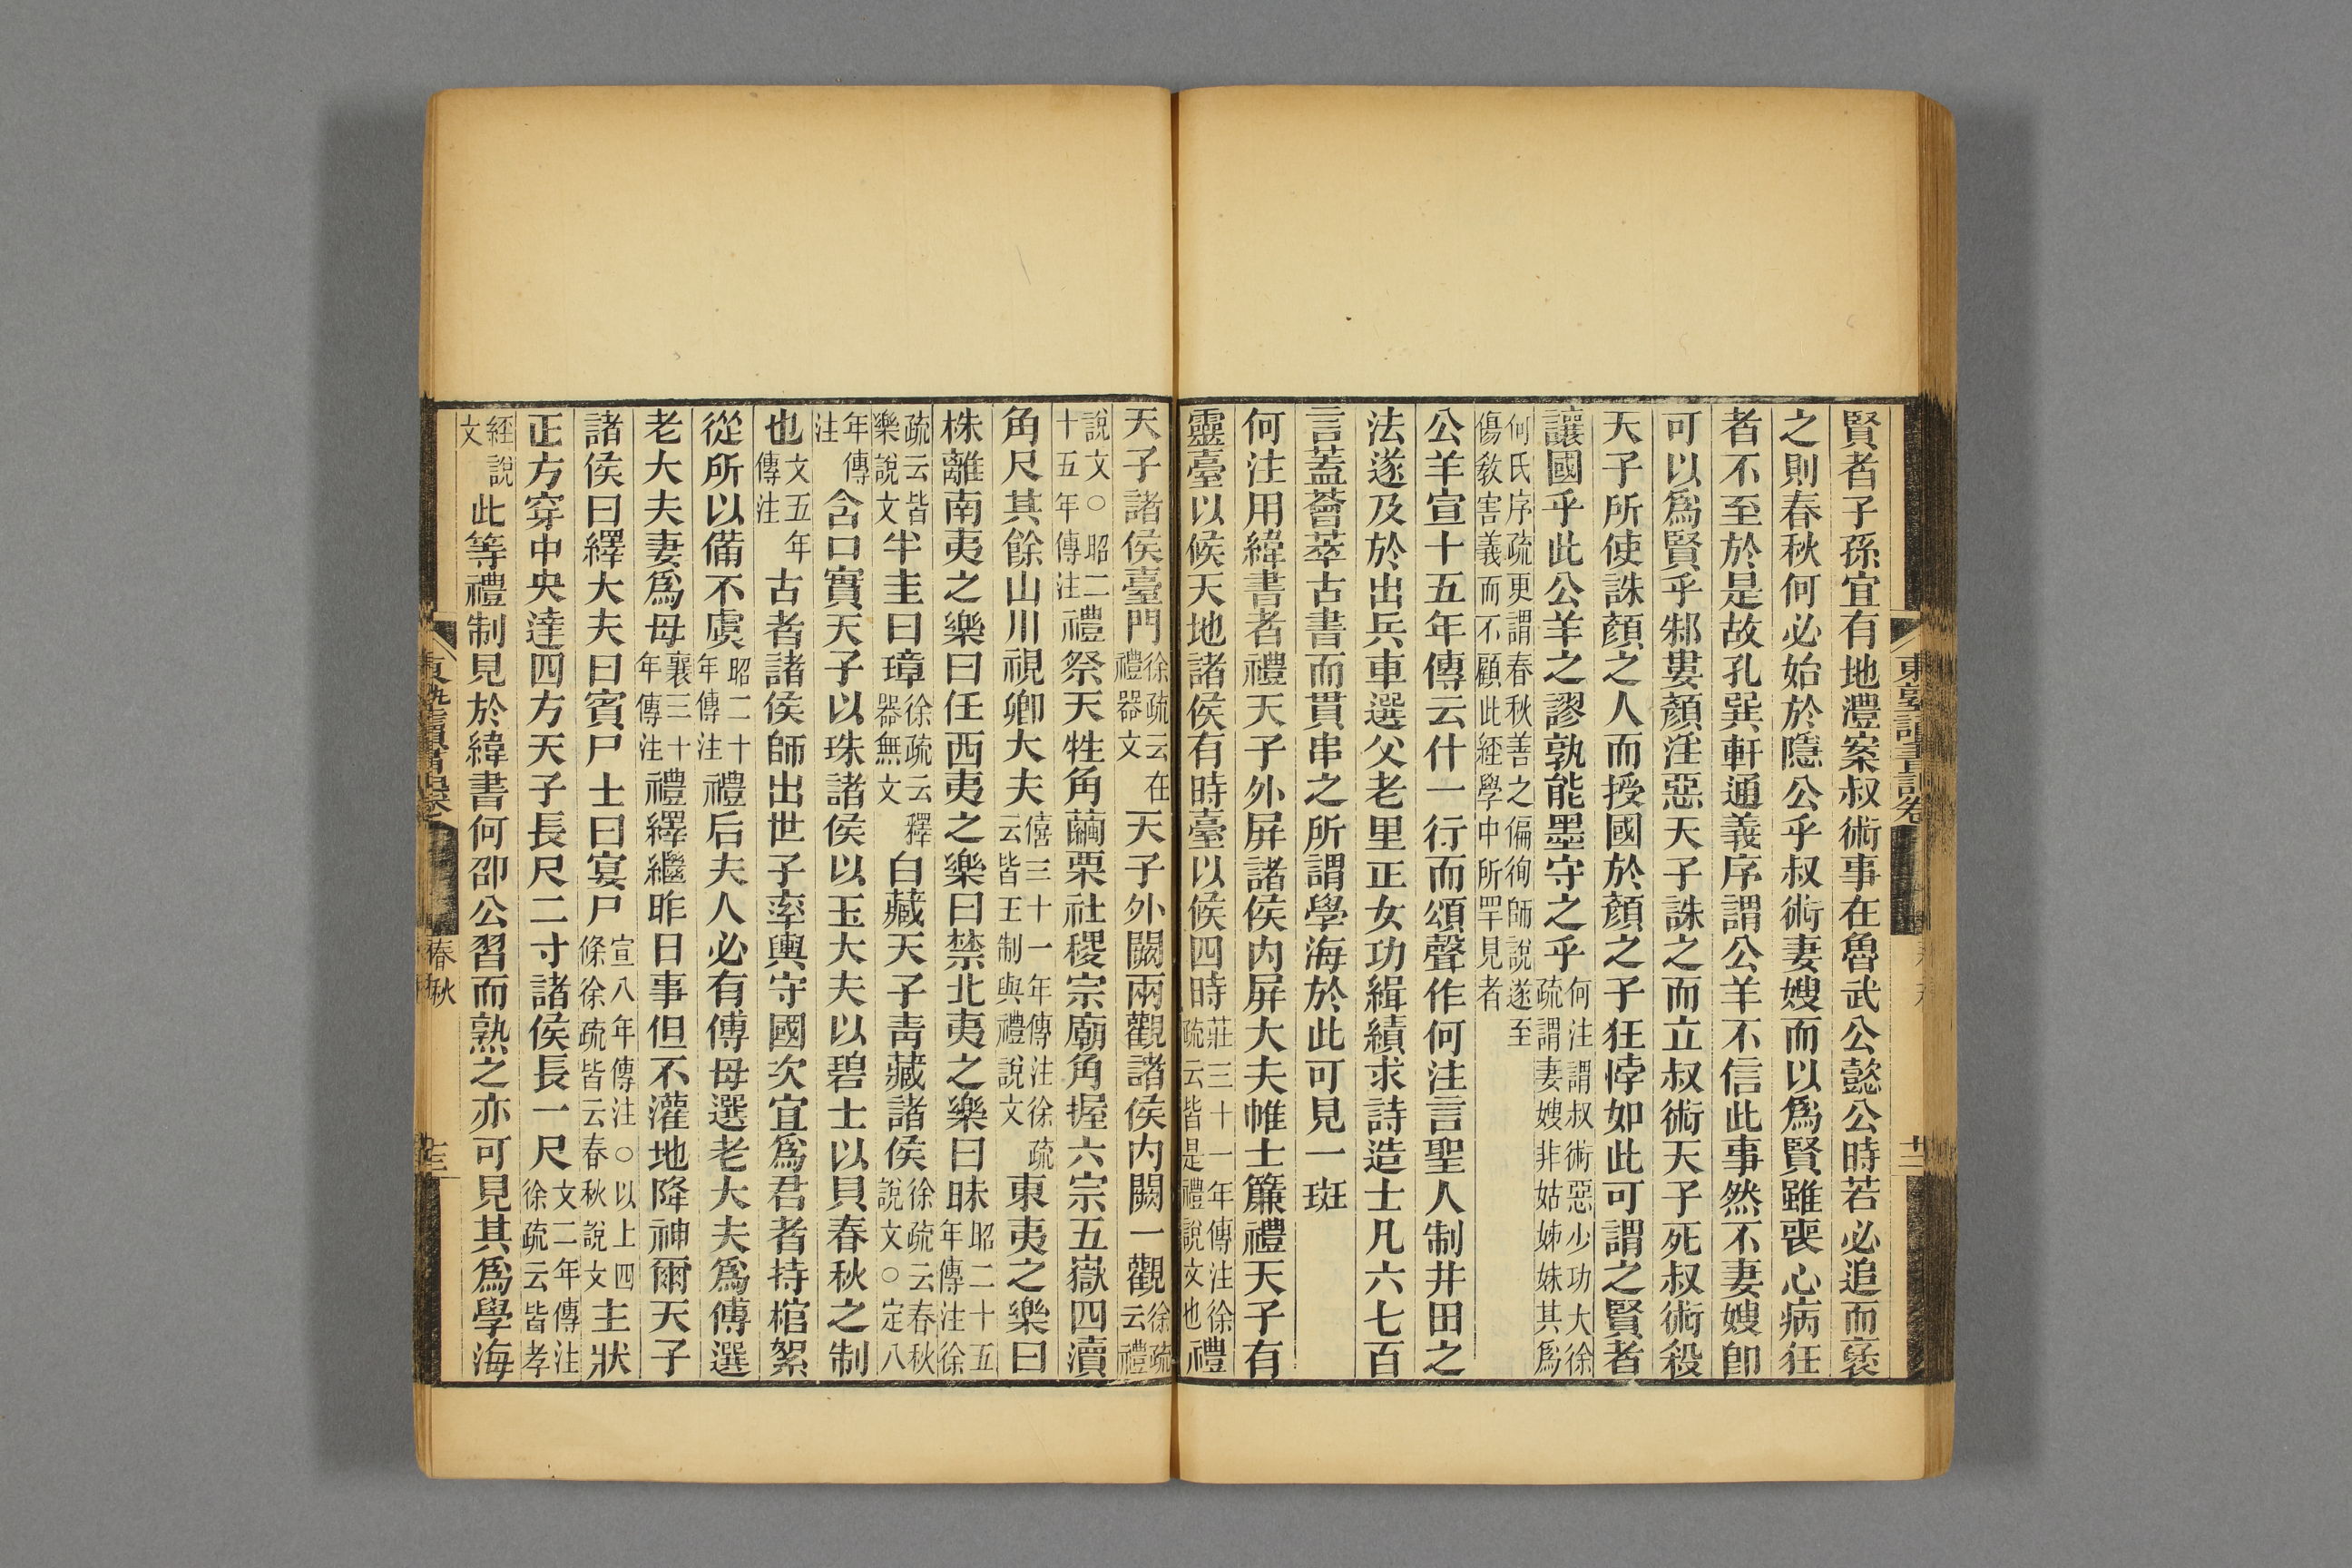 賢者子孫宜有地澧案叔術事在魯武公懿公時若必追而襃
之則春秋何必始於隱公乎叔術妻嫂而以爲賢雖喪心病狂
者不至於是故孔巽軒通義序謂公羊不信此事然不妻嫂卽
可以爲賢乎邾婁顏淫惡天子誅之而立叔術天子死叔術殺
天子所使誅顏之人而授國於顏之子狂悖如此可謂之賢者
讓國乎此公羊之謬孰能墨守之乎何注謂叔術惡少功大徐疏謂妻嫂非姑姊妹其爲
何氏序疏更謂春秋善之偏徇師說遂至傷敎害義而不顧此經學中所罕見者
公羊宣十五年傳云什一行而頌聲作何注言聖人制井田之
法遂及於出兵車選父老里正女功緝績求詩造士凡六七百
言蓋薈萃古書而貫串之所謂學海於此可見一斑
何注用緯書者禮天子外屏諸侯內屏大夫帷士簾禮天子有
靈臺以候天地諸侯有時臺以候四時莊三十一年傳注徐疏云皆是禮說文也禮
天子諸侯臺門徐疏云在禮器文天子外闕兩觀諸侯內闕一觀徐疏云禮
說文○昭二十五年傳注禮祭天牲角繭栗社稷宗廟角握六宗五嶽四瀆
角尺其餘山川視卿大夫僖三十一年傳注徐疏云皆王制與禮說文東夷之樂曰
株離南夷之樂曰任西夷之樂曰禁北夷之樂曰昧昭二十五年傳注徐
疏云皆樂說文半圭曰璋徐疏云釋器無文白藏天子靑藏諸侯徐疏云春秋說文○定八
年傳注含口實天子以珠諸侯以玉大夫以碧士以貝春秋之制
也文五年傳注古者諸侯師出世子率輿守國次宜爲君者持棺絮
從所以備不虞昭二十年傳注禮后夫人必有傅母選老大夫爲傅選
老大夫妻爲母襄三十年傳注禮繹繼昨日事但不灌地降神爾天子
諸侯曰繹大夫曰賓尸士曰宴尸宣八年傳注○以上四條徐疏皆云春秋說文主狀
正方穿中央達四方天子長尺二寸諸侯長一尺文二年傳注徐疏云皆孝
經說文此等禮制見於緯書何邵公習而熟之亦可見其爲學海
春秋